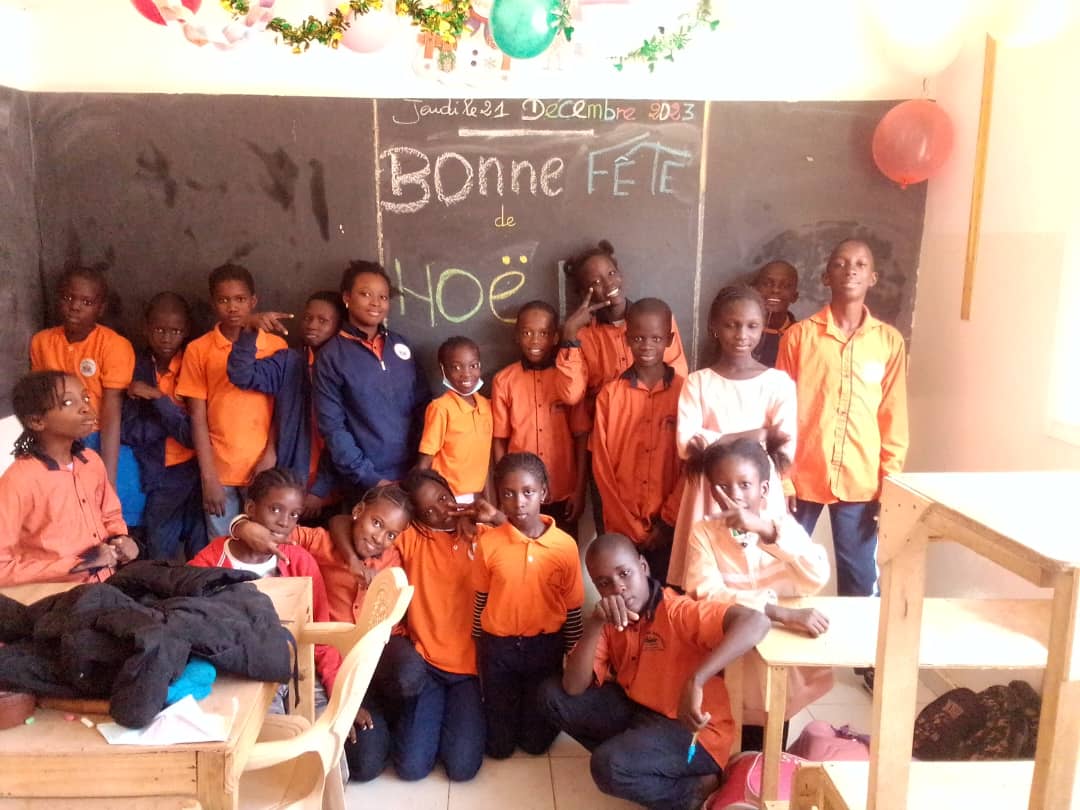 Jeudi le 21 Décembre 2023
BOnne FÊTE
de
NOË